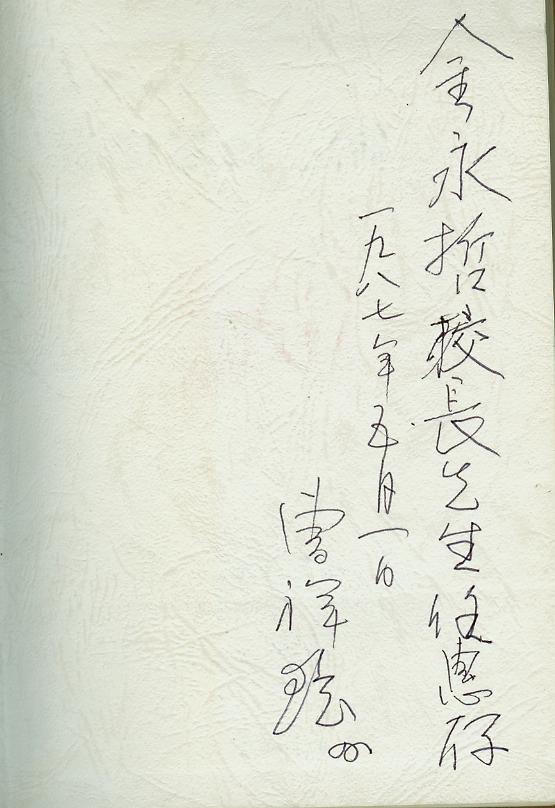 金永哲校長先生惠存
一九八七年五月一日
曹祥